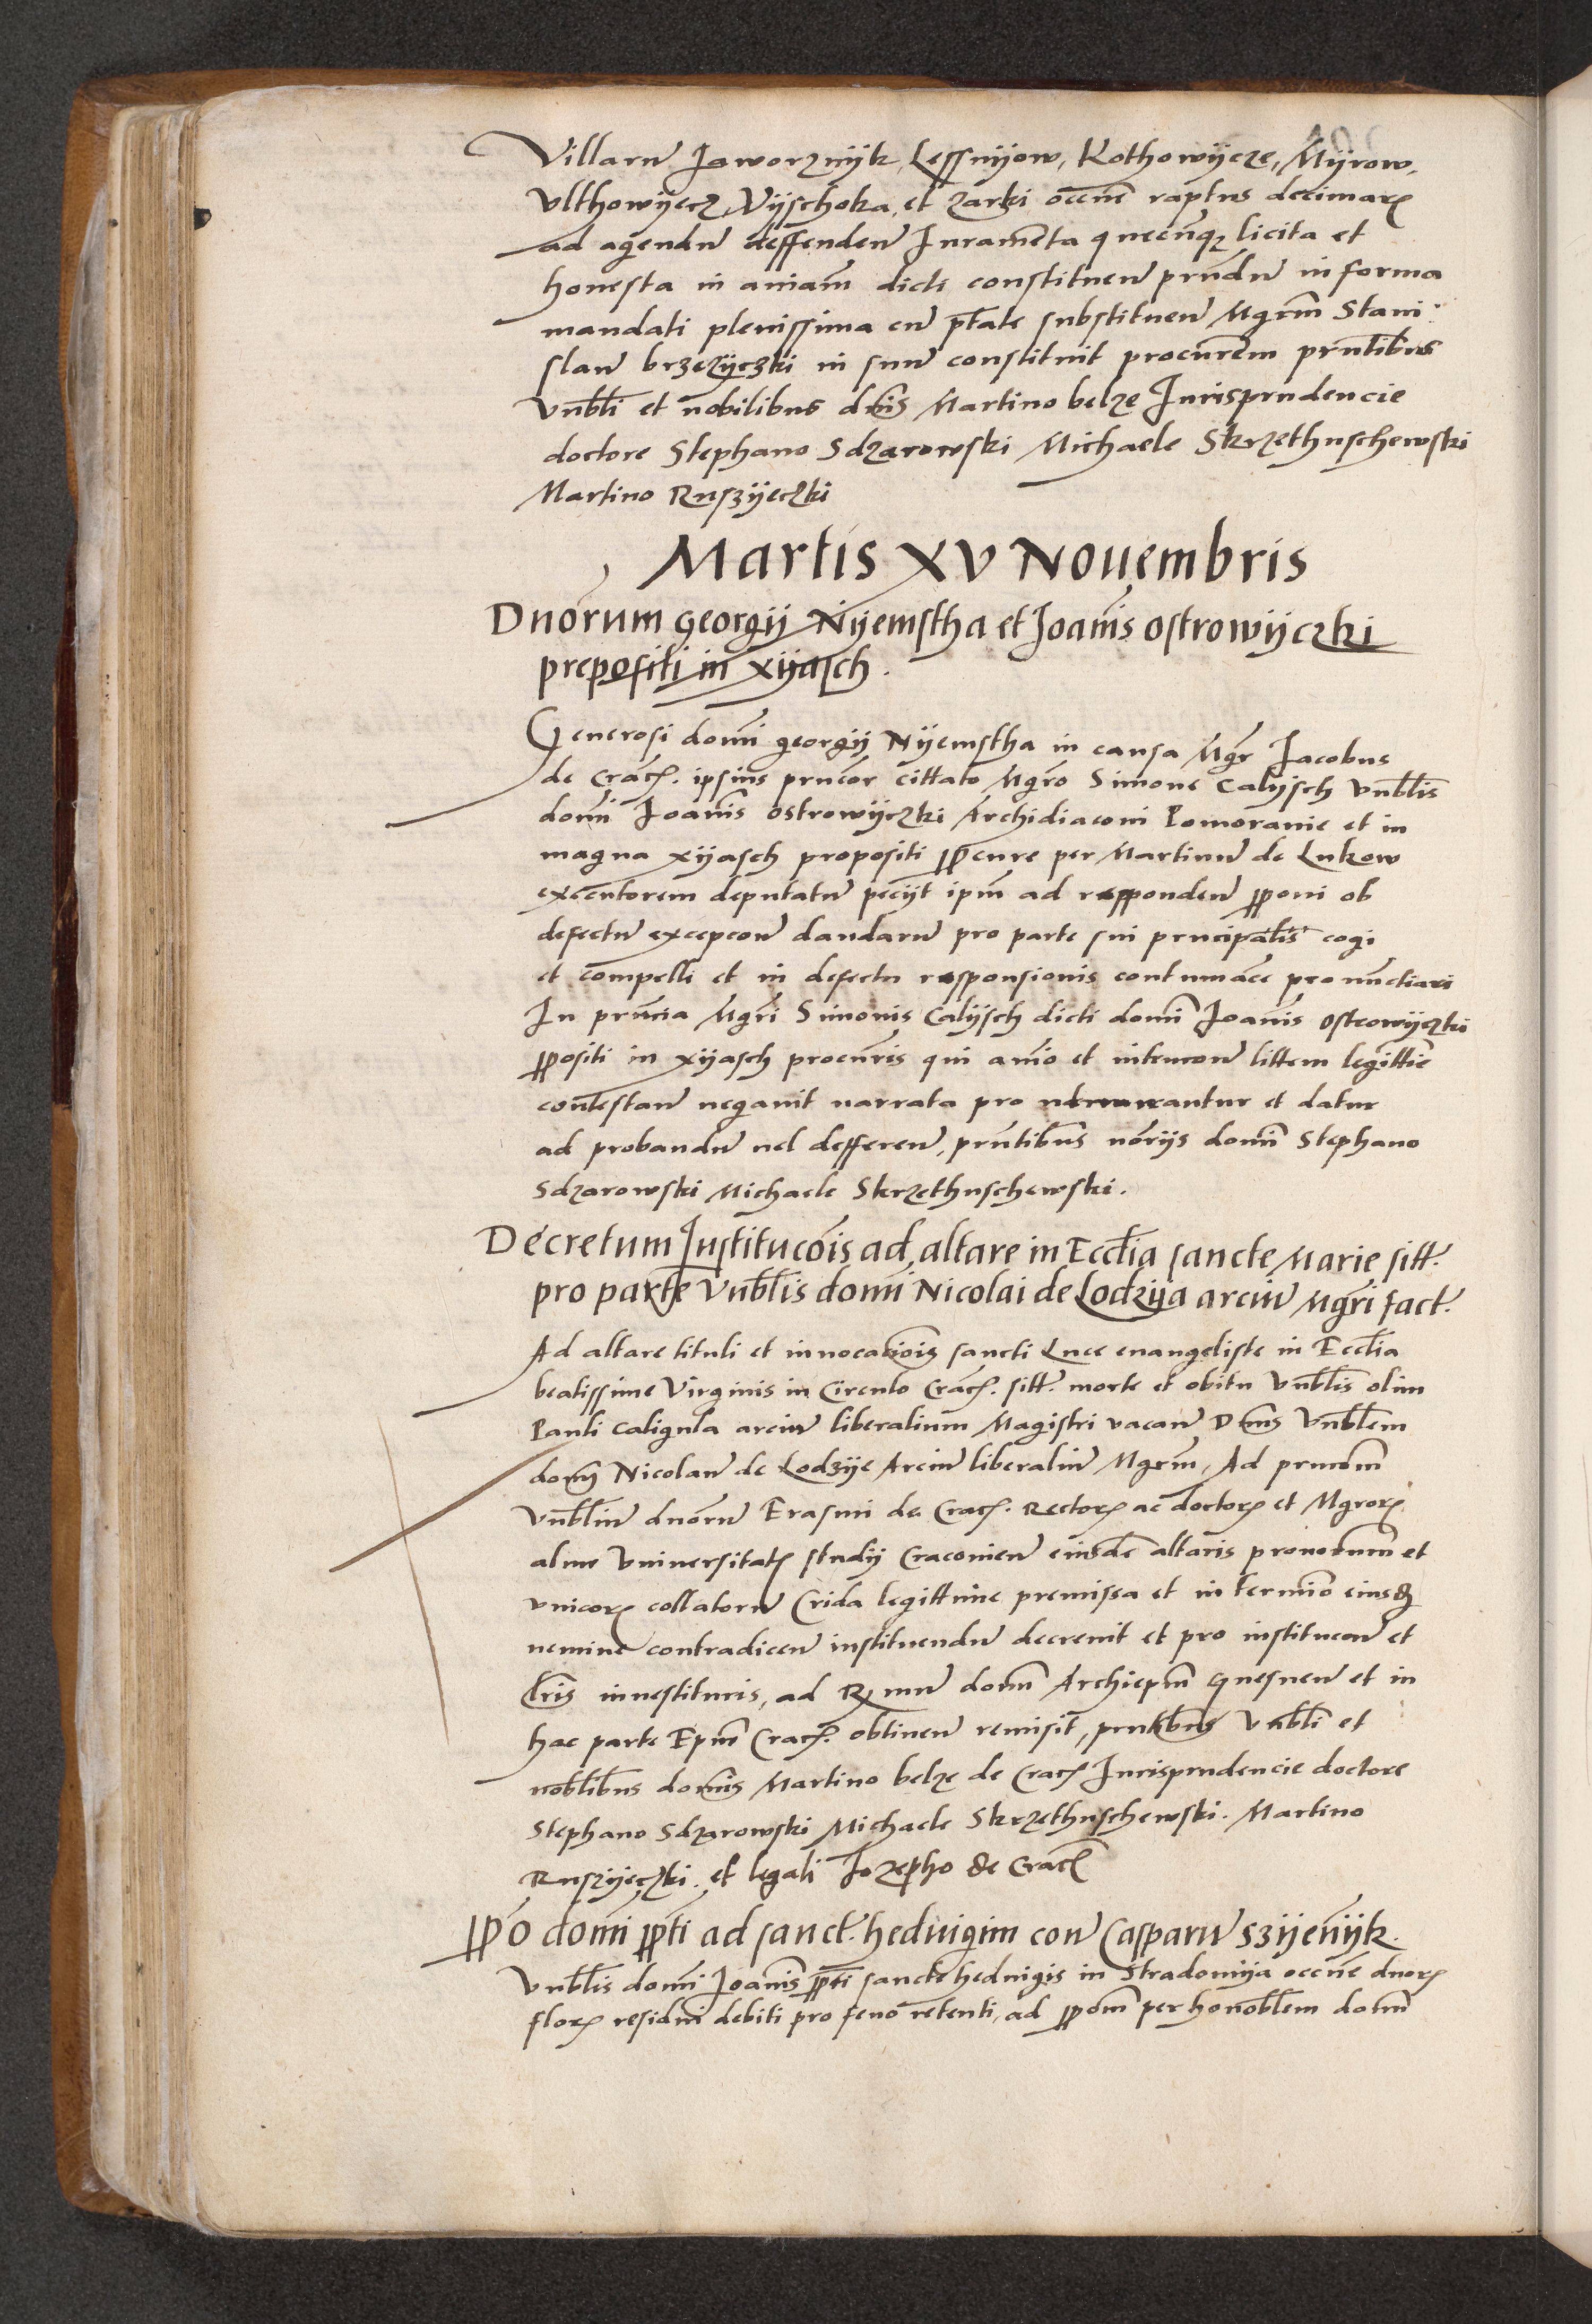 Villarū Jaworznijk, Lessnijow, Kothowijcze, Mijrow,
Vlthowijecz, Wijschoka, et zarki occnē raptus decimarꝝ
ad agendū deffendeñ Juramenta quecūqꝫ licita et
honesta in aniam̄ dicti constitueñ prn̄dū in forma
mandati plenissima cū ptāte substitueñ Mgrm̄ Stani:
slaū brzezijczki in suū constituit procurēm prn̄tibus
vnbl̄i et nobilibus dn̄is Martino belze Jurisprudencie
doctore Stephano Sdzarowski Michaele Skrzethuschewski
Martino Ruszijeczki
Martis XV Nouembris
Dnōrum georgij Nijemstha et Joan̄is ostrowijczki
prepositi in xijasch.
Generosi domī georgij Nijemstha in causa Mgr̄ Jacobus
de Crac̄. ipsius prn̄cor cittato Mgrō Simone Calijsch vnbl̄is
domī Joan̄is ostrowijczki Archidiaconi Pomoranie et in
magna xijasch propositi ꝓcure per Martinū de Lukow
executorem deputatū pecijt ipm̄ ad respondeñ ꝓponi ob
defectū excepcoñ dandarū pro parte sui prncipalis cogi
et compelli et in defectu responsionis contumacē pronūctiari
In prn̄cia Mgrī Simonis Calijsch dicti domī Joan̄is ostrowijczki
ꝓpositi in xijasch procurīs qui anīo et intencoñ littem legittīe
contestañ negauit narrata pro ut narrantur et datur
ad probandū uel defferen̄, prn̄tibus nōrijs domī Stephano
Sdzarowski Michaele Skrzethuschewski.
Decretum Institucōis ad altare in Eccl̄ia sancte Marie sitt.
pro parte Vnbl̄is domī Nicolai de Lodzija arciū Mgrī fact.
Ad altare tituli et inuocacōis sancti Luce euangeliste in Eccl̄ia
beatissime Virginis in Circulo Crac̄. sitt. morte et obitu Vnbl̄is olim
Pauli Caligula arciū liberalium Magistri vacañ Dn̄s Vnbl̄em
domī Nicolaū de Lodzije Arciū liberaliū Mgrm̄, Ad prn̄com̄
Vnbl̄iū dnōrū Erasmi de Crac̄. Rectorꝝ ac doctorꝝ et Mgrorꝝ
alme Vniuersitatꝭ studij Cracouień eiusdē altaris pronorum̄ et
vnicorꝝ collatorū Crida legittime premissa et in termīo eiusꝗ
nemine contradiceñ instituendū decreuit et pro institucoñ et
Lr̄is inuestituris, ad R mū domī Archiepm̄ Gnesneñ et in
hac parte Epm̄ Crac̄. obtineñ remisit, prn̄tibus Vnbl̄i et
nobl̄ibus domīs Martino belze de Crac̄ Jurisprudencie doctore
Stephano Sdzarowski Michaele Skrzethuschewski. Martino
Ruszijeczki. et legali Jozepho de Crac̄
ꝓpō domī ꝓpt̄i ad sanct. heduigim con̄ Casparū szijenijk.
Vnbl̄is domī Joan̄is ꝓpt̄i sancte heduigis in Stradomija occnē dnorꝝ
florꝝ residui debiti pro feno retenti, ad ꝓpom̄ per honobl̄em domī